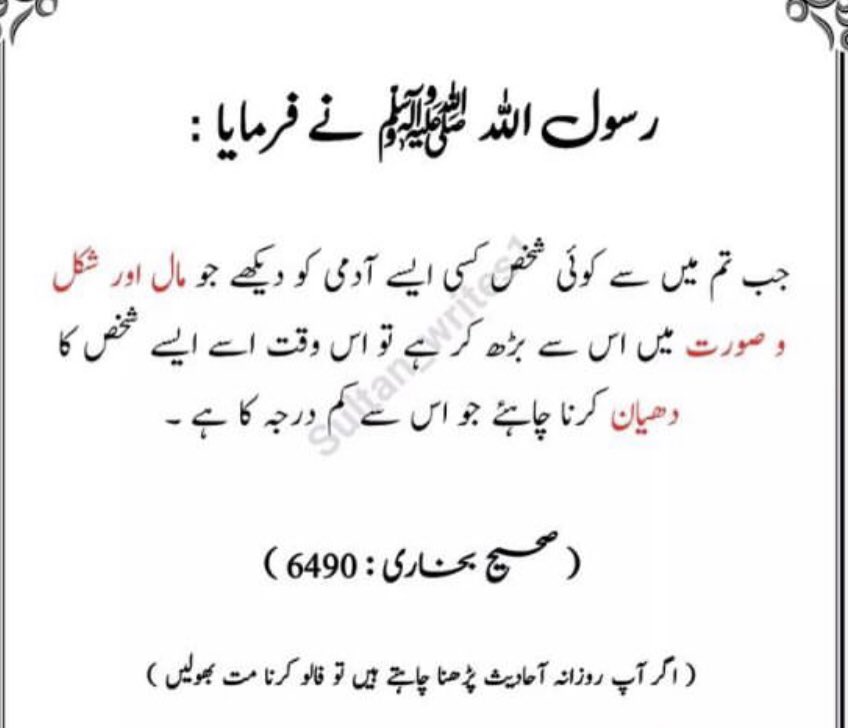 رسول اللہ ﷺ نے فرمایا :
جب تم میں سے کوئی شخص کسی ایسے آدمی کو دیکھے جو مال اور شکل
و صورت میں اس سے بڑھ کر ہے تو اس وقت اسے ایسے شخص کا
دھیان کرنا چاہئے جو اس سے کم درجہ کا ہے ۔
( صحیح بخاری : 6490 )
( اگر آپ روزانہ آحادیث پڑھنا چاہتے ہیں تو فالو کرنا مت بھولیں )
Sultan_writes1